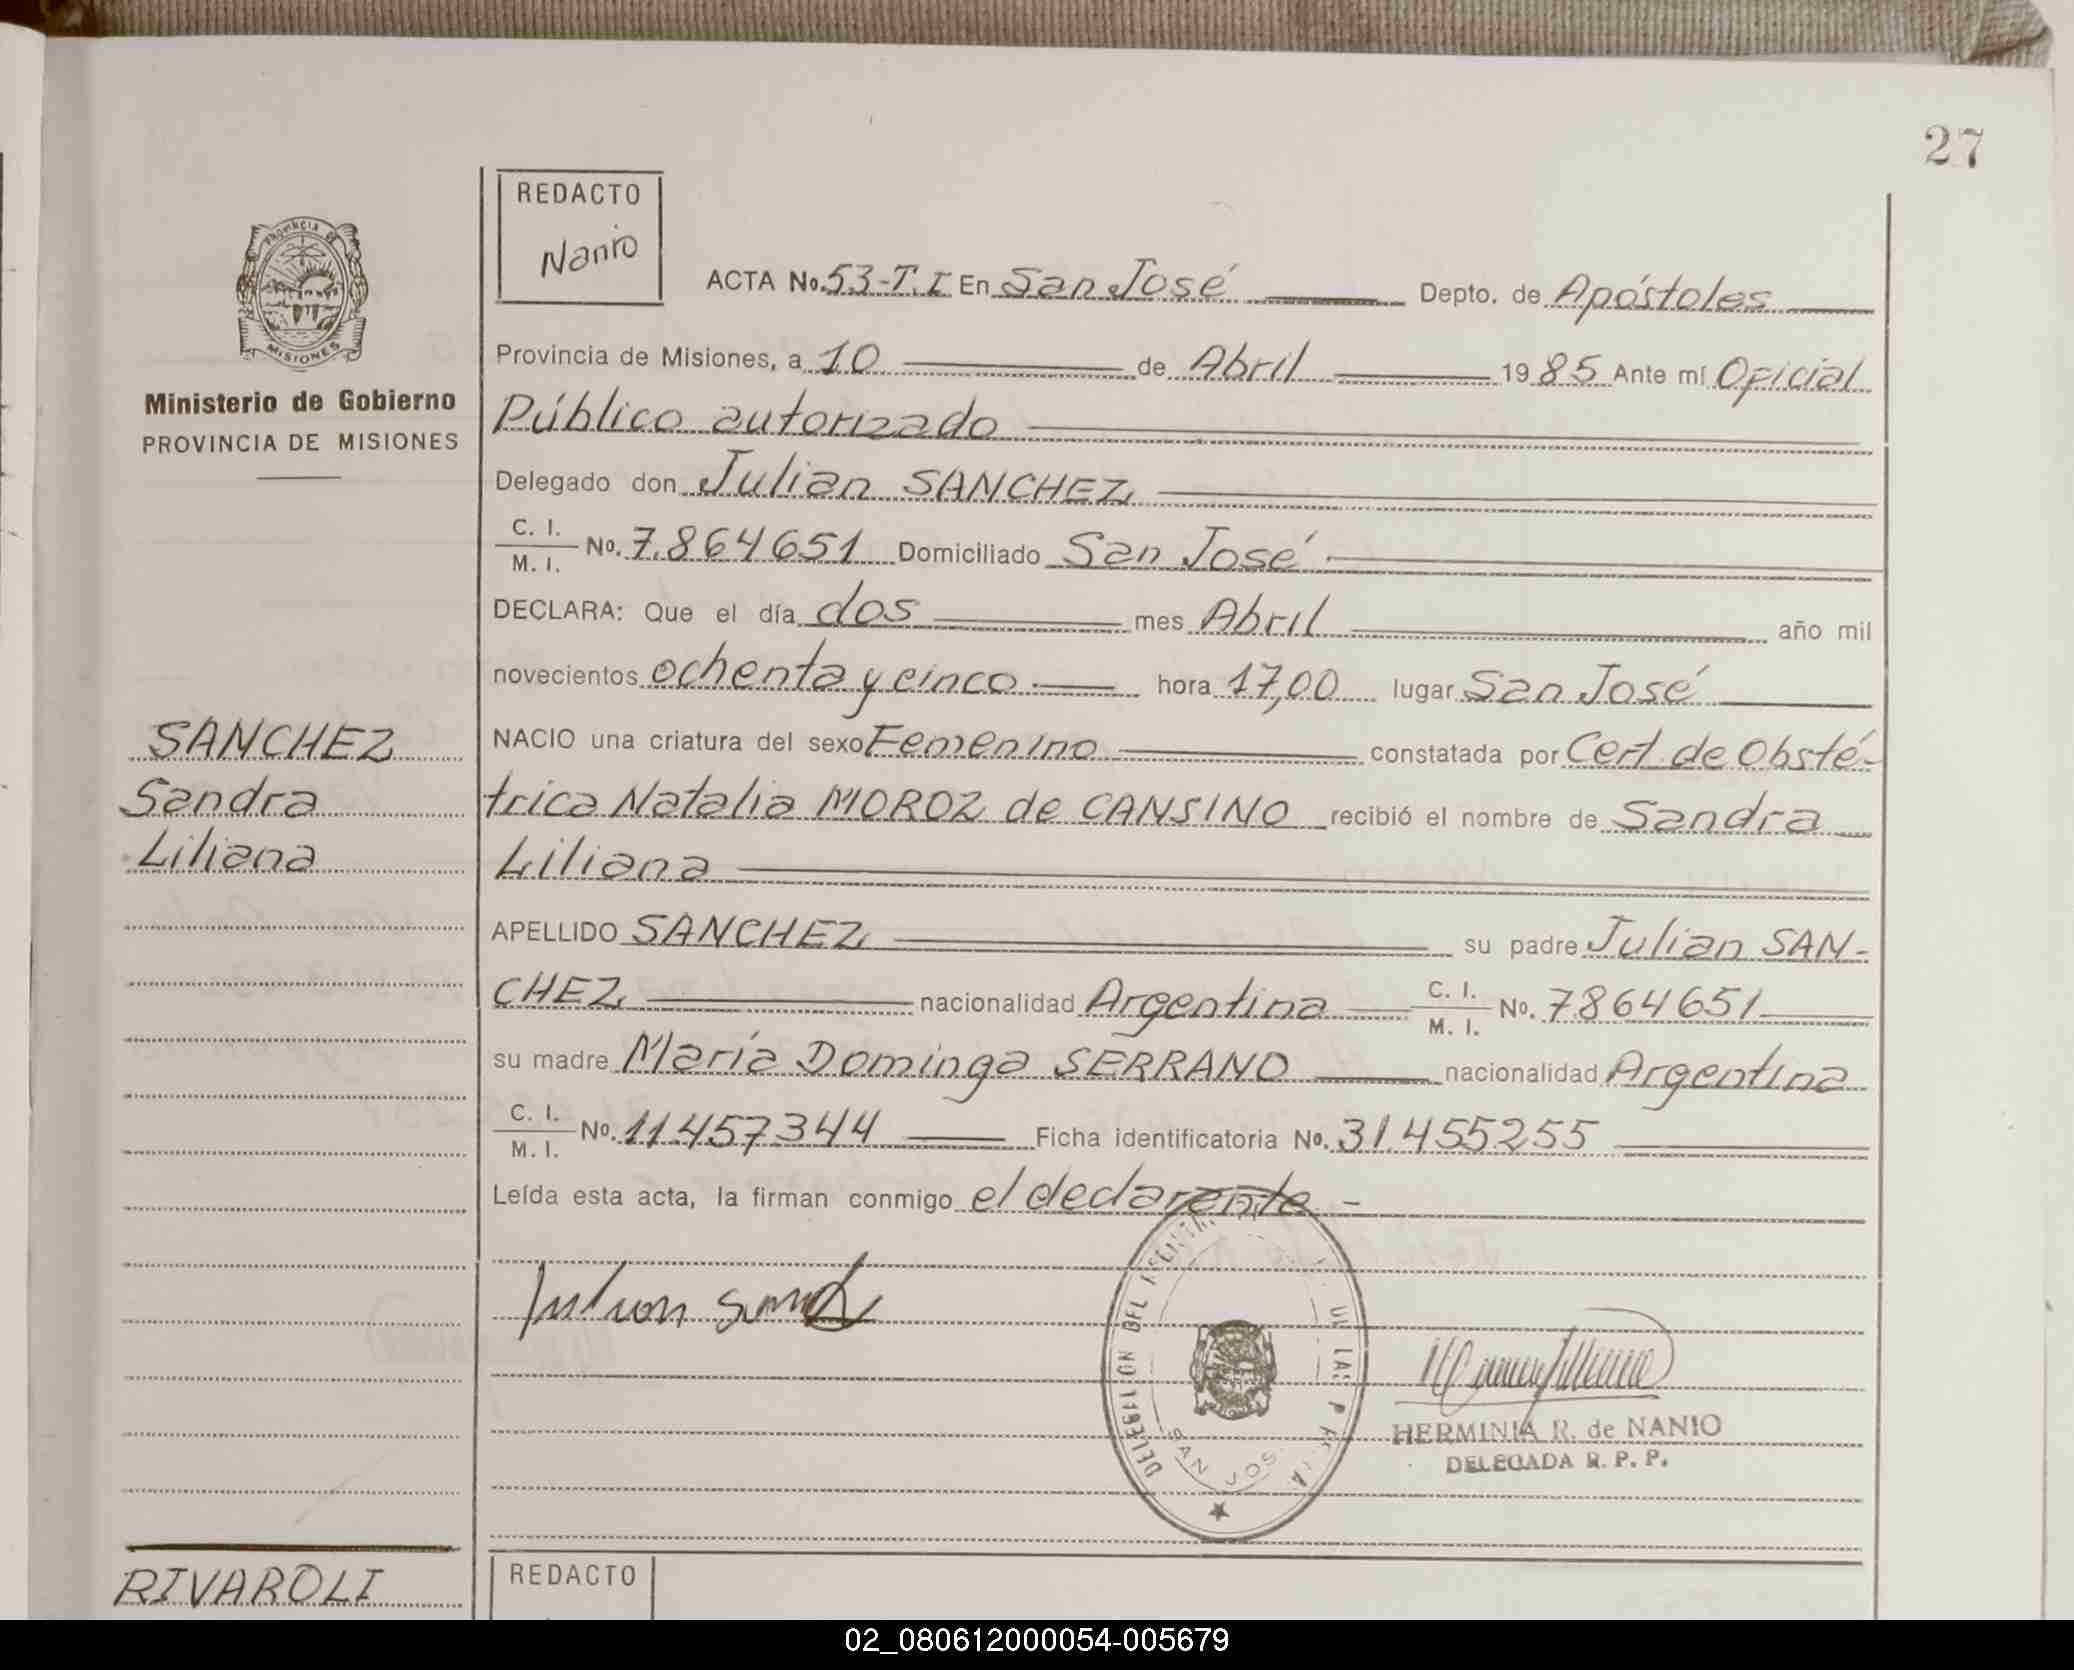 27
REDACTO
Nanio
PROVINCIA DE
MISIONES
Ministerio de Gobierno
PROVINCIA DE MISIONES
ACTA No. 53-T.I En San José Depto. de Apóstoles
Provincia de Misiones, a 10 de Abril 1985 Ante mí Oficial
Público autorizado
Delegado don Julian SANCHEZ
C. I.
M. I. No. 7.864651 Domiciliado San José
DECLARA: Que el día dos mes Abril año mil
novecientos ochenta y cinco hora 17,00 lugar San José
NACIO una criatura del sexo Femenino constatada por Cert. de Obsté-
trica Natalia MOROZ de CANSINO recibió el nombre de Sandra
Liliana
APELLIDO SANCHEZ su padre Julian SAN-
CHEZ nacionalidad Argentina C. I.
M. I. No. 7864651
su madre María Dominga SERRANO nacionalidad Argentina
C. I.
M. I. No. 11.457344 Ficha identificatoria No. 31.455255
Leída esta acta, la firman conmigo el declarante -
SANCHEZ
Sandra
Liliana
Julian
DEL
DE LAS P
SAN JOSE
HERMINIA R. de NANIO
DELEGADA R. P. P.
RIVAROLI
REDACTO
02_080612000054-005679